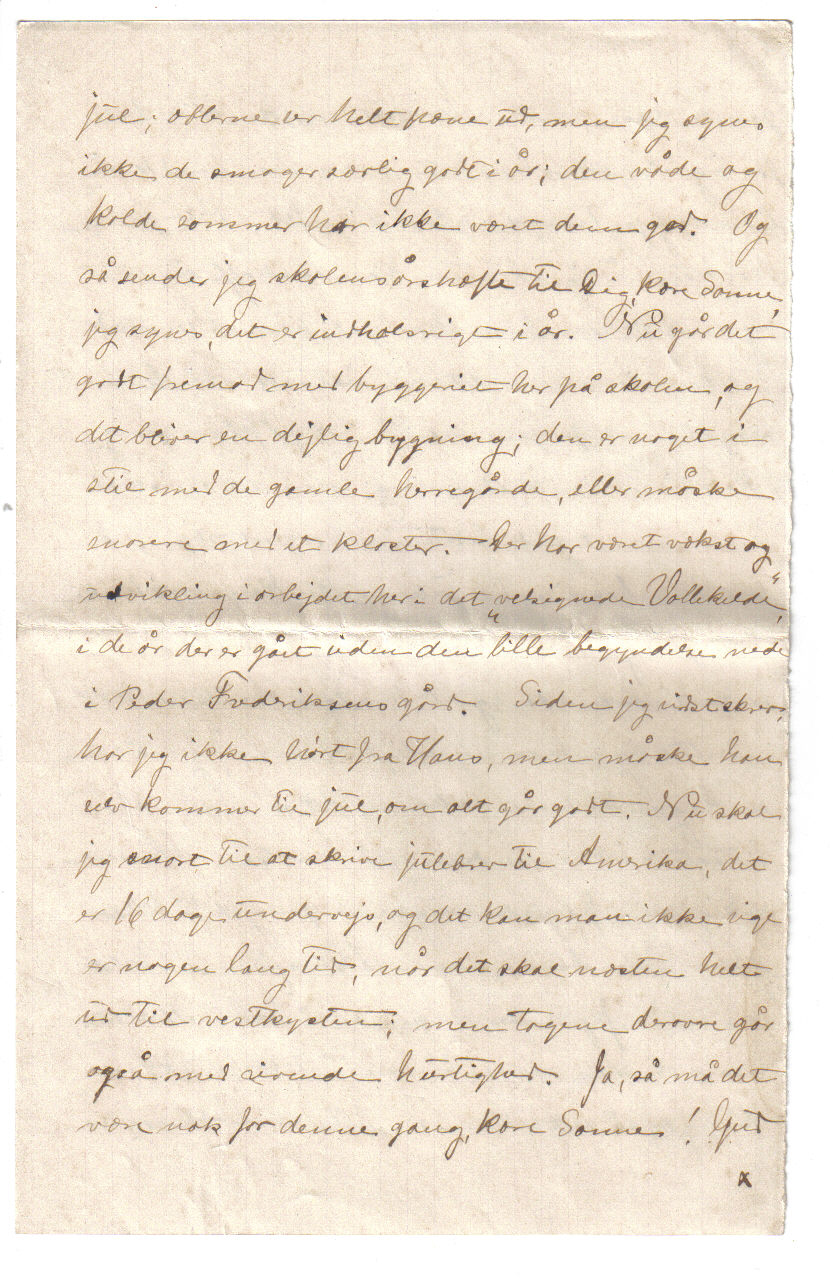 jul; æblerne ser helt pæne ud, men jeg synes
ikke de smager særlig godt i år; den våde og
kolde sommer har ikke været dem god. Og
så sender jeg skolens årshæfte til Dig, kære Sanne,
jeg synes, det er indholsrigt i år. Nu går det
godt fremad med byggeriet her på skolen, og
det bliver en dejlig bygning; den er noget i
stil med de gamle herregårde, eller måske
snarere med et kloster. Der har været vækst og
udvikling i arbejdet her i det "velsignede Vallekilde",
i de år der er gået siden den lille begyndelse nede
i Peder Frederiksens gård. Siden jeg sidst skrev,
har jeg ikke hørt fra Hans, men måske han
selv kommer til jul, om alt går godt. Nu skal
jeg snart til at skrive julebrev til Amerika, det
er 16 dage undervejs, og det kan man ikke sige
er nogen lang tid, når det skal næsten helt
ud til vestkysten; men togene derovre går
også med rivende hurtighed. Ja, så må det
være nok for denne gang, kære Sanne! Gud
x